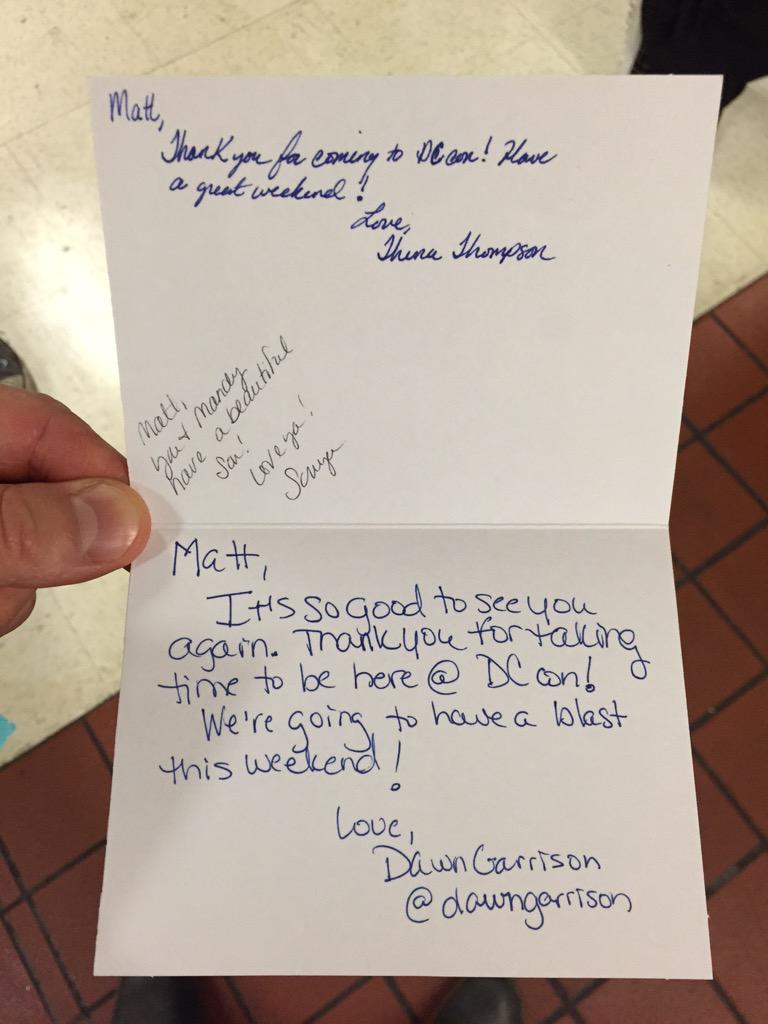 Matt,
Thank you for coming to DC con! Have
a great weekend!
Love,
Thena Thompson
Matt,
you + Mandy
have a beautiful
son!
Love ya!
Matt,
It's so good to see you
again. Thank you for taking
time to be here @ DC con!
We're going to have a blast
this weekend!
Love,
Dawn Garrison
@dawngarrison